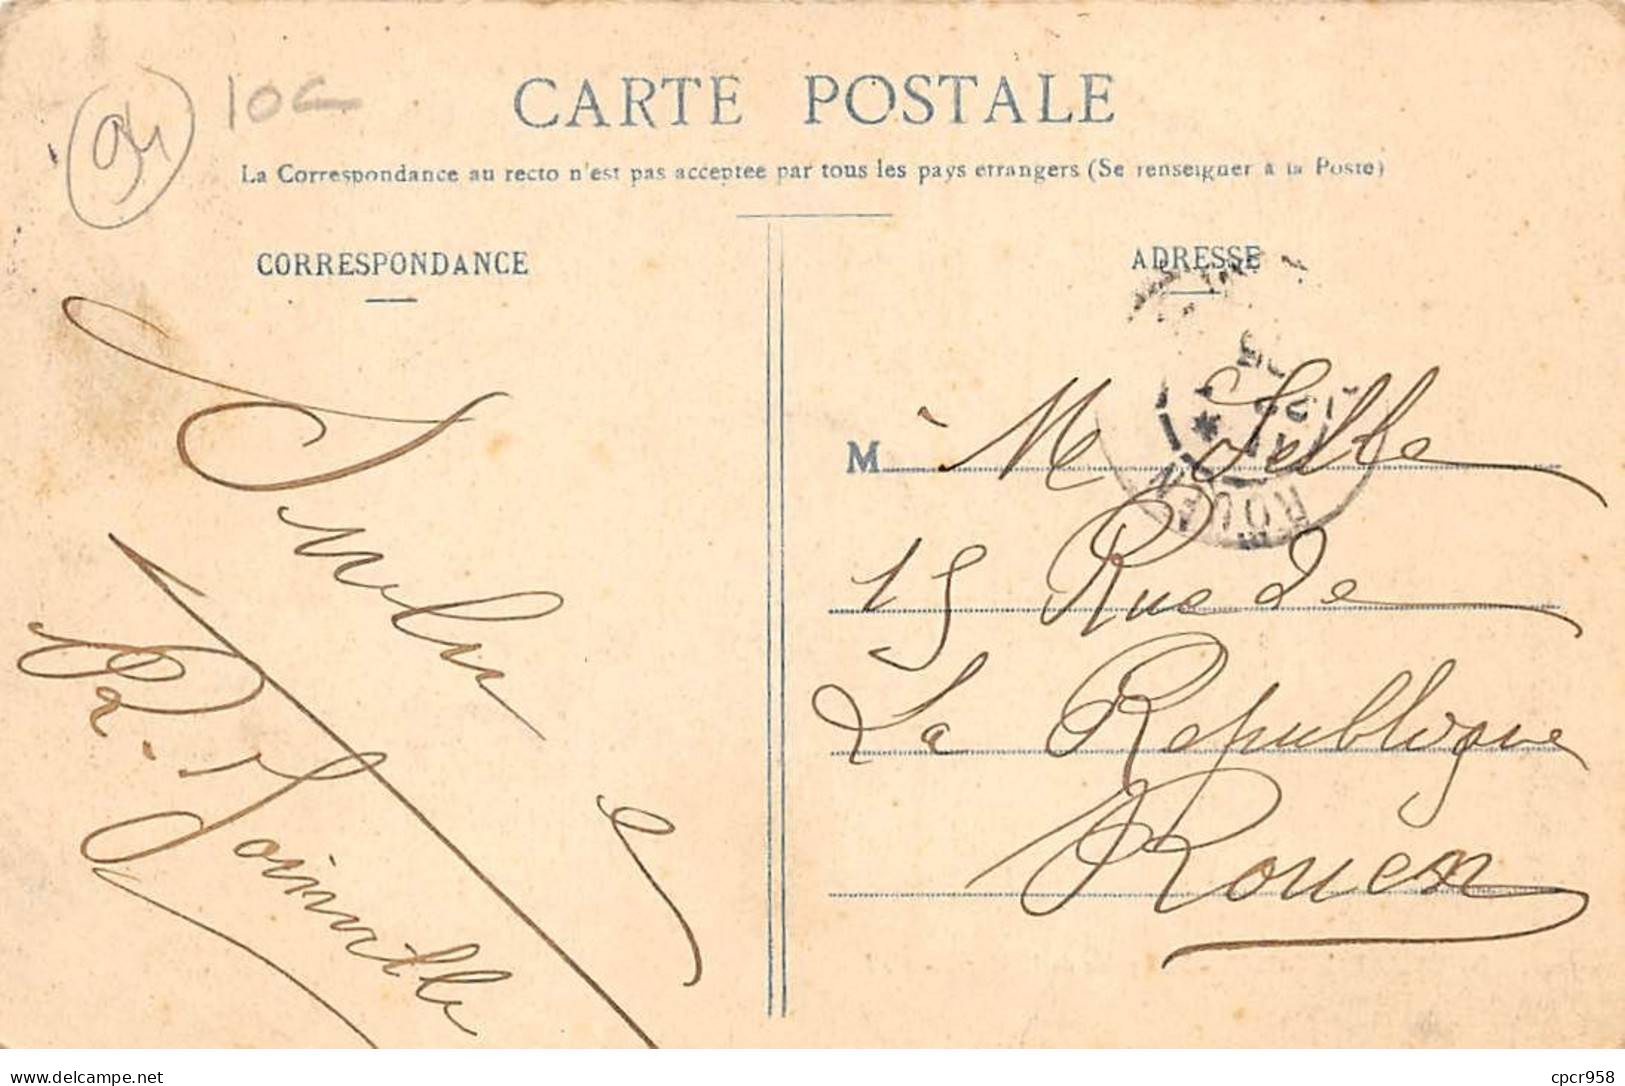 94 10c
CARTE POSTALE
La Correspondance au recto n'est pas acceptee par tous les pays etrangers (Se renseigner à la Poste)
CORRESPONDANCE
ADRESSE
Joinville
M à Me
15 Rue de
La République
Rouen
ROUEN
delcampe.net
cpcr958